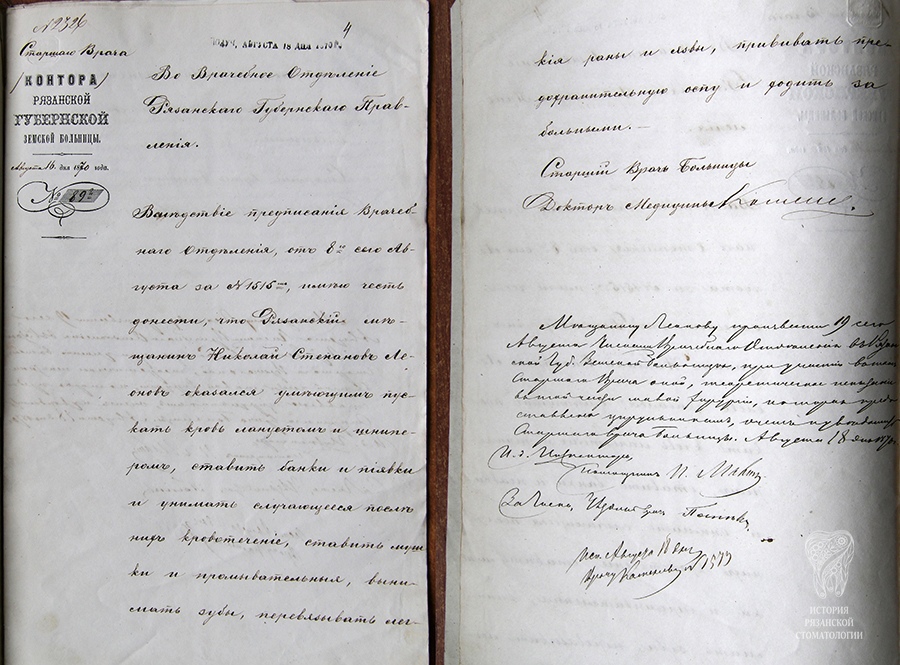 № 2326
4
Получ. Августа 18 дня 1870 г.
Старшаго Врача
КОНТОРА
РЯЗАНСКОЙ
ГУБЕРНСКОЙ
ЗЕМСКОЙ БОЛЬНИЦЫ.
Августа 16 дня 1870 года.
№ 89
Во Врачебное Отдѣленіе
Рязанскаго Губернскаго Прав-
ленія.
Вслѣдствіе предписанія Врачеб-
наго Отдѣленія, отъ 8го сего Ав-
густа за № 1515мъ, имѣю честь
донести, что Рязанскій мѣ-
щанинъ Николай Степановъ Ле-
оновъ оказался умѣющимъ пус-
кать кровь ланцетомъ и шнипе-
ромъ, ставить банки и піявки
и унимать случающееся послѣ
нихъ кровотеченіе, ставить муш
ки и промывательныя, выни-
мать зубы, перевязывать лег-
кія раны и язвы, прививать пре-
дохранительную оспу и ходить за
больными.—
Старшій Врачъ Больницы
Докторъ Медицины
Мѣщанину Леонову произвести 19 сего
Августа
Врачебнаго Отдѣленія въ
ской Губ. Земской Больницы, при
Старшаго Врача оной, теоретическое
малой хирургіи,
Старшаго Врача Больницы. Августа 18 дня 1870
И. д. Инспектора
Помощникъ П.
Исп. Августа 18 дня
Врачу № 1579
ИСТОРИЯ
РЯЗАНСКОЙ
СТОМАТОЛОГИИ